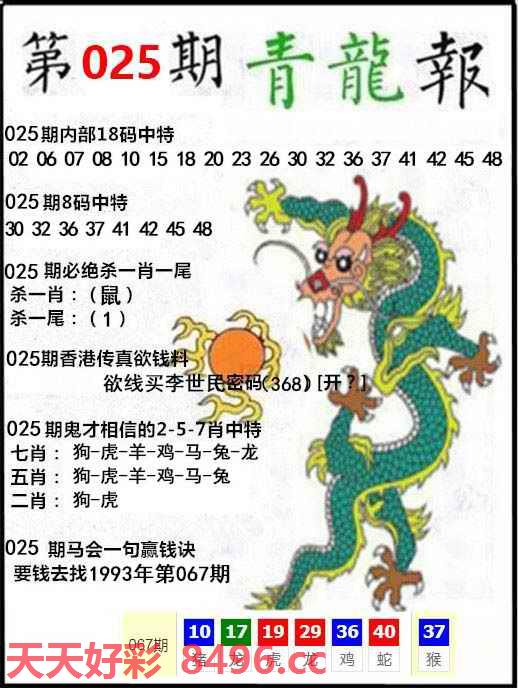 第025期 青龍報
025期内部18码中特
02 06 07 08 10 15 18 20 23 26 30 32 36 37 41 42 45 48
025期8码中特
30 32 36 37 41 42 45 48
025 期必绝杀一肖一尾
杀一肖：（鼠）
杀一尾：（1）
025期香港传真欲钱料
欲线买李世民密码(368)[开？]
025期鬼才相信的2-5-7肖中特
七肖：狗-虎-羊-鸡-马-兔-龙
五肖：狗-虎-羊-鸡-马-兔
二肖：狗-虎
025 期马会一句赢钱诀
要钱去找1993年第067期
067期 10 17 19 29 36 40 37
猪 龙 虎 龙 鸡 蛇 猴
天天好彩 8496.cc